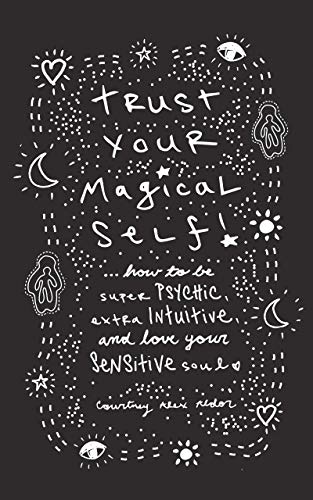 trust
your
Magical
Self!
...how to be
super PSYCHIC,
extra INTUITIVE,
and love your
SENSITIVE soul
Courtney Alex Aldor